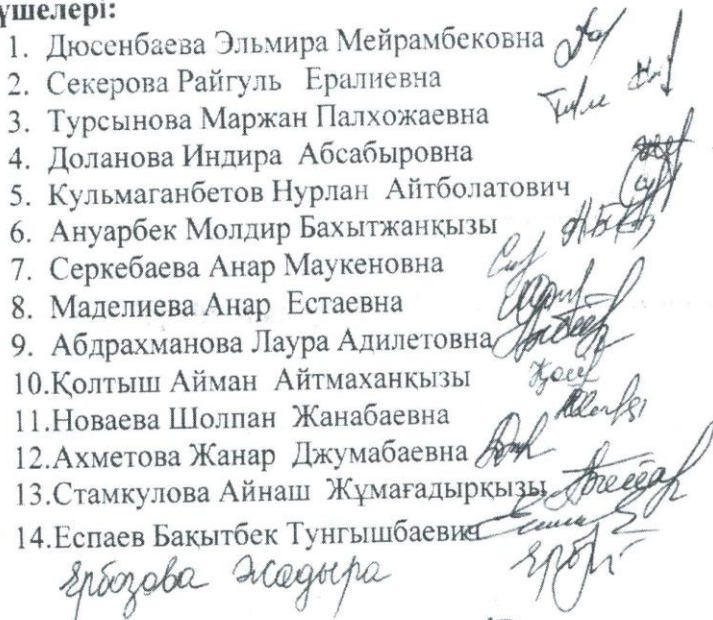 үшелері:
1. Дюсенбаева Эльмира Мейрамбековна
2. Секерова Райгуль Ералиевна
3. Турсынова Маржан Палхожаевна
4. Доланова Индира Абсабыровна
5. Кульмаганбетов Нурлан Айтболатович
6. Ануарбек Молдир Бахытжанқызы
7. Серкебаева Анар Маукеновна
8. Маделиева Анар Естаевна
9. Абдрахманова Лаура Адилетовна
10.Қолтыш Айман Айтмаханқызы
11.Новаева Шолпан Жанабаевна
12.Ахметова Жанар Джумабаевна
13.Стамкулова Айнаш Жұмағадырқызы
14.Еспаев Бақытбек Тунгышбаевич
Ербозова Жадыра